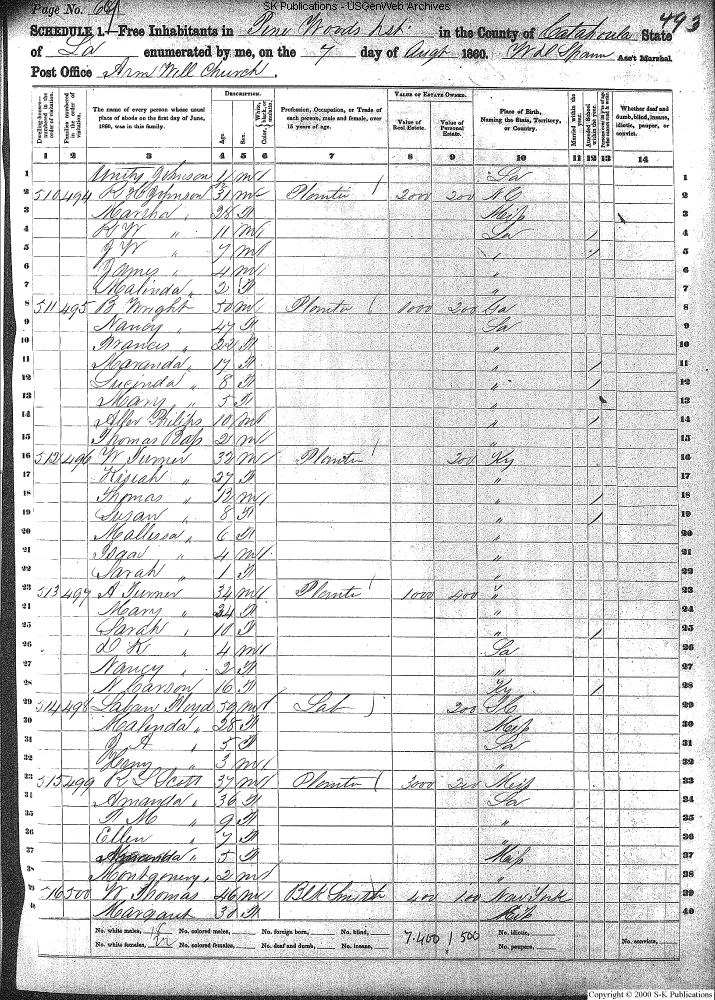 SK Publications - USGenWeb Archives
Page No. 69
493
SCHEDULE 1.—Free Inhabitants in Pine Woods Dist. in the County of Catahoula State
of La enumerated by me, on the 7 day of Augt 1860. Wd Spann Ass't Marshal.
Post Office Arm Well Church.
Dwelling-houses—numbered in the order of visitation.
Families numbered in the order of visitation.
The name of every person whose usual place of abode on the first day of June, 1860, was in this family.
DESCRIPTION.
Age.
Sex.
Color, White, black, or mulatto.
Profession, Occupation, or Trade of each person, male and female, over 15 years of age.
VALUE OF ESTATE OWNED.
Value of Real Estate.
Value of Personal Estate.
Place of Birth, Naming the State, Territory, or Country.
Married within the year.
Attended School within the year.
Whether deaf and dumb, blind, insane, idiotic, pauper, or convict.
1 2 3 4 5 6 7 8 9 10 11 12 13 14
1 Johnson 11 m La 1
2 510 494 Johnson 31 m Planter 2000 200 NC 2
3 Marsha " 28 f Misp 3
4 R W " 11 m La / 4
5 J W " 7 m " / 5
6 James " 4 m " 6
7 Malinda " 2 f " 7
8 511 495 B Wright 50 m Planter 1000 200 Ga 8
9 Nancy " 47 f La 9
10 Francis " 22 f " 10
11 Maranda " 17 f " / 11
12 Lucinda " 8 f " / 12
13 Mary " 5 f " 13
14 Philips 10 m " / 14
15 Thomas 2 m " 15
16 512 496 W Turner 32 m Planter 300 Ky 16
17 Kisiah " 27 f " 17
18 Thomas " 12 m " / 18
19 Susan " 8 f " / 19
20 Mallissa " 6 f 20
21 Isaa " 4 m " 21
22 Sarah " 1 f " 22
23 513 497 A Turner 34 m Planter 1000 400 " 23
24 Mary " 34 f " 24
25 Sarah " 10 f " / 25
26 D K " 4 m La 26
27 Nancy " 2 f " 27
28 N Carson 16 f Ky / 28
29 514 498 Laban Floyd 59 m Lab 200 SC 29
30 Malinda " 28 f Misp 30
31 J A " 5 f La 31
32 Heny " 3 m " 32
33 515 499 R L Scott 37 m Planter 3000 200 Misp 33
34 Amanda " 36 f La 34
35 M " 9 f " 35
36 Ellen " 7 f " 36
37 Amanda " 5 f 37
38 Montgomery " 2 m " 38
39 516 500 W Thomas 46 m Blk Smith 400 100 New York 39
40 Margaret " 30 f Misp 40
No. white males, 18 No. colored males, No. foreign born, No. blind, 7.400 1500 No. idiotic, No. convicts,
No. white females, 22 No. colored females, No. deaf and dumb, No. insane, No. paupers,
Copyright © 2000 S-K Publications